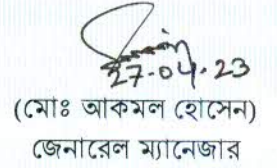 27-04-23
(মোঃ আকমল হোসেন)
জেনারেল ম্যানেজার